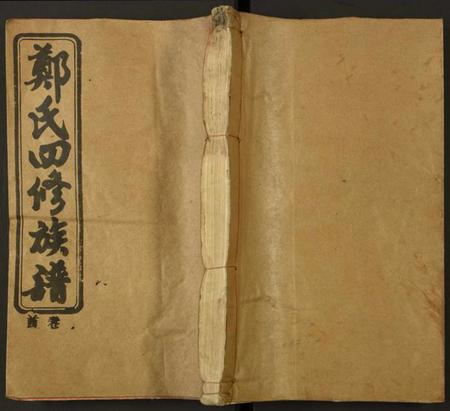 鄭氏四修族譜
卷首